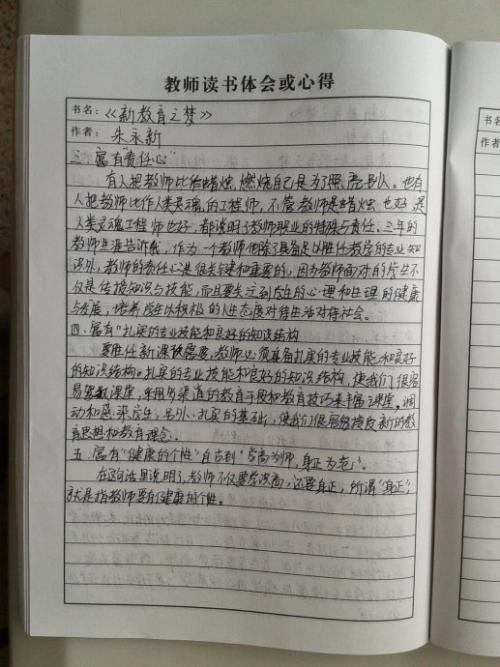 教师读书体会或心得
书名：《新教育之梦》
作者：朱永新
三、富有"责任心"
有人把教师比作蜡烛，燃烧自己是为了照亮别人。也有
人把教师比作人类灵魂的工程师，不管教师是蜡烛也好是
人类灵魂工程师也好，都说明了教师职业的特殊与责任。三年的
教师生涯告诉我，作为一个教师他除了具备足以胜任教学的专业知
识外，教师的责任心是很关键和重要的，因为教师面对的学生不
仅是传授知识与技能，而且要关注到学生的心理和生理的健康
与发展，培养学生以积极的人生态度对待生活对待社会。
四、富有"扎实的专业技能和良好的知识结构
要胜任新课需要，教师必须具备扎实的专业技能和良好
的知识结构。扎实的专业技能和良好的知识结构，使我们很容
易驾驭课堂，采用多渠道的教育手段和教育技巧来丰富了课堂，调
动和感学生，另外，扎实的基础，使我们很容易接受新的教
育思想和教育理念。
五、富有"健康的个性"自古到"学高为师，身正为范"。
在这句话里说明了，教师不仅要学识高，还要身正，所谓"身正"，
就是指教师要有健康的个性。
书名
作者